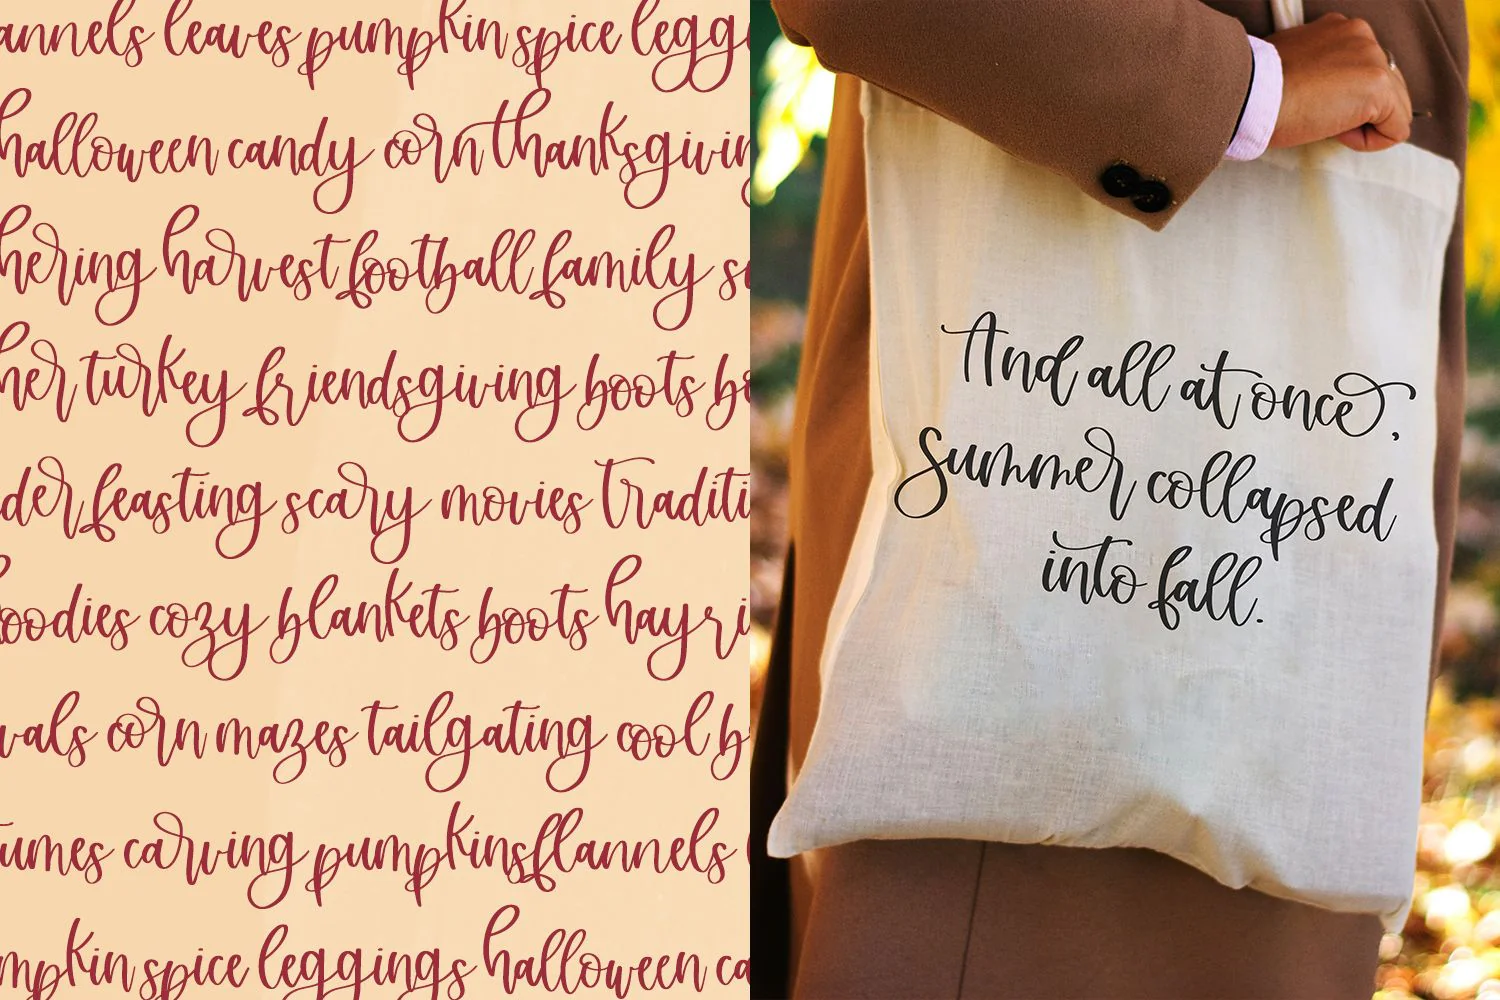 annels leaves pumpkin spice legg
halloween candy corn thanksgivin
hering harvest football family s
her turkey friendsgiving boots b
der feasting scary movies traditi
oodies cozy blankets boots hayri
vals corn mazes tailgating cool b
umes carving pumpkins flannels
mpkin spice leggings halloween ca
And all at once,
Summer collapsed
into fall.